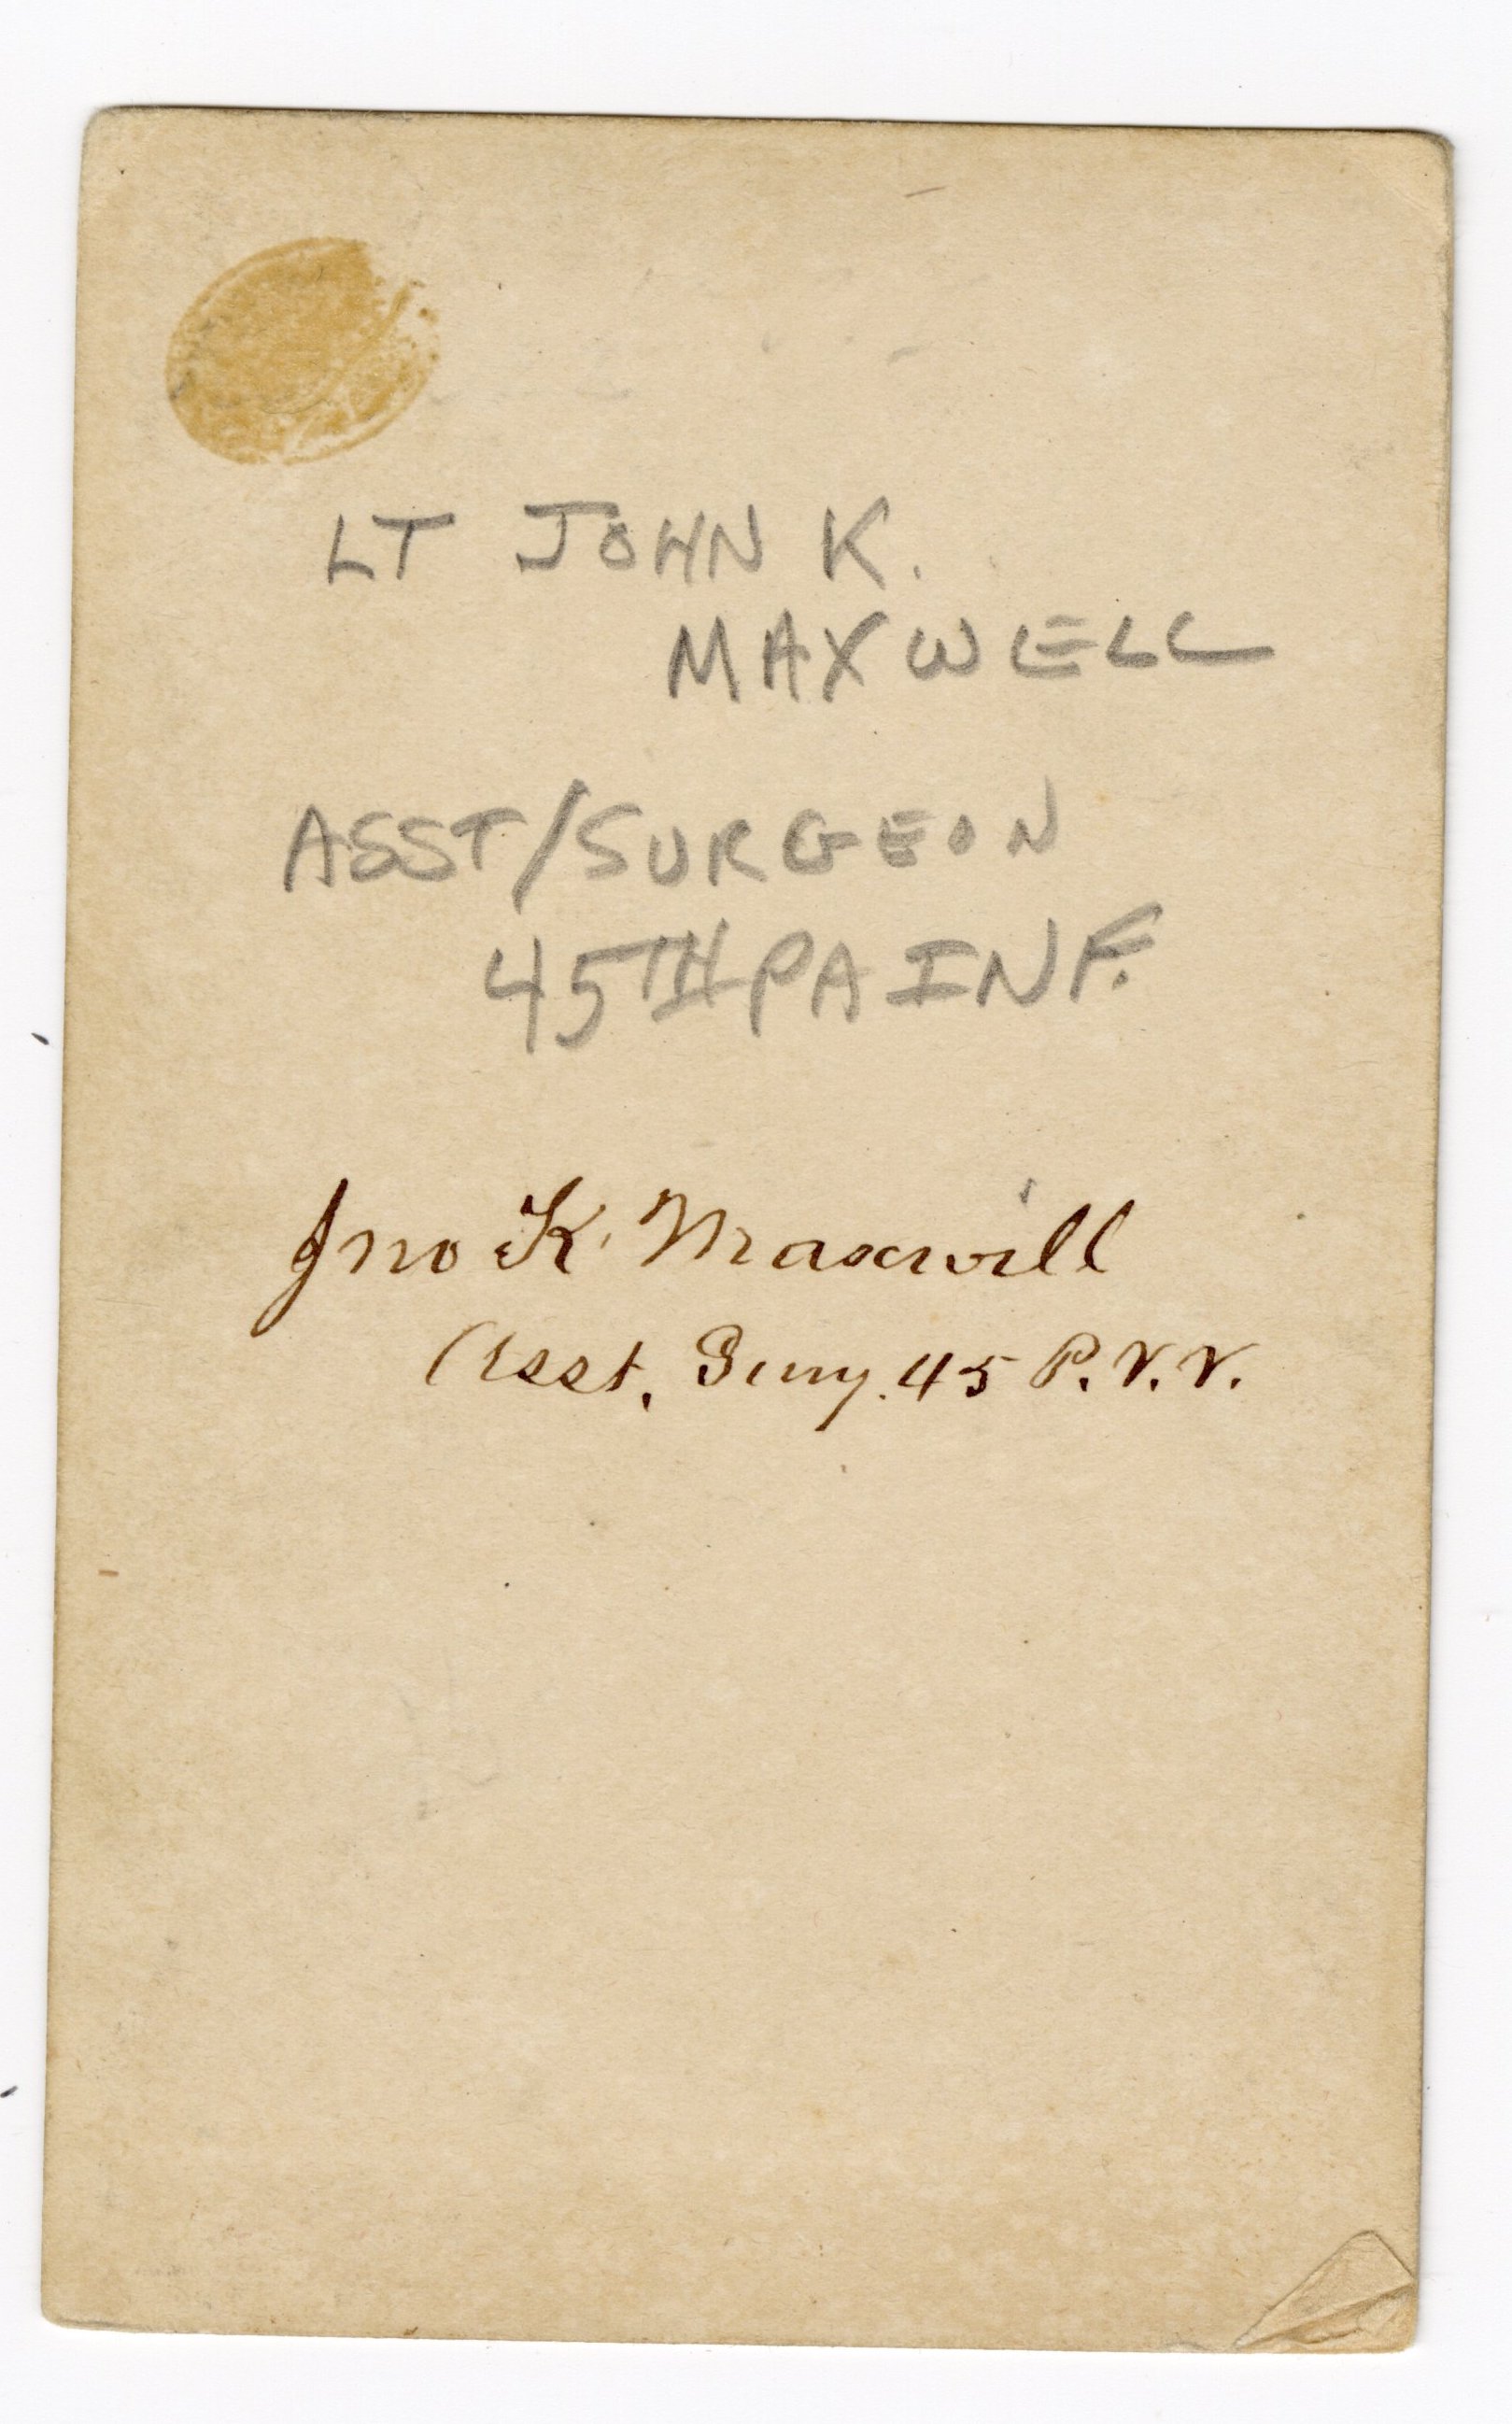 LT JOHN K.
MAXWELL
ASST/SURGEON
45TH PA INF.
Jno K. Maxwell
Asst. Surg. 45 P.V.V.